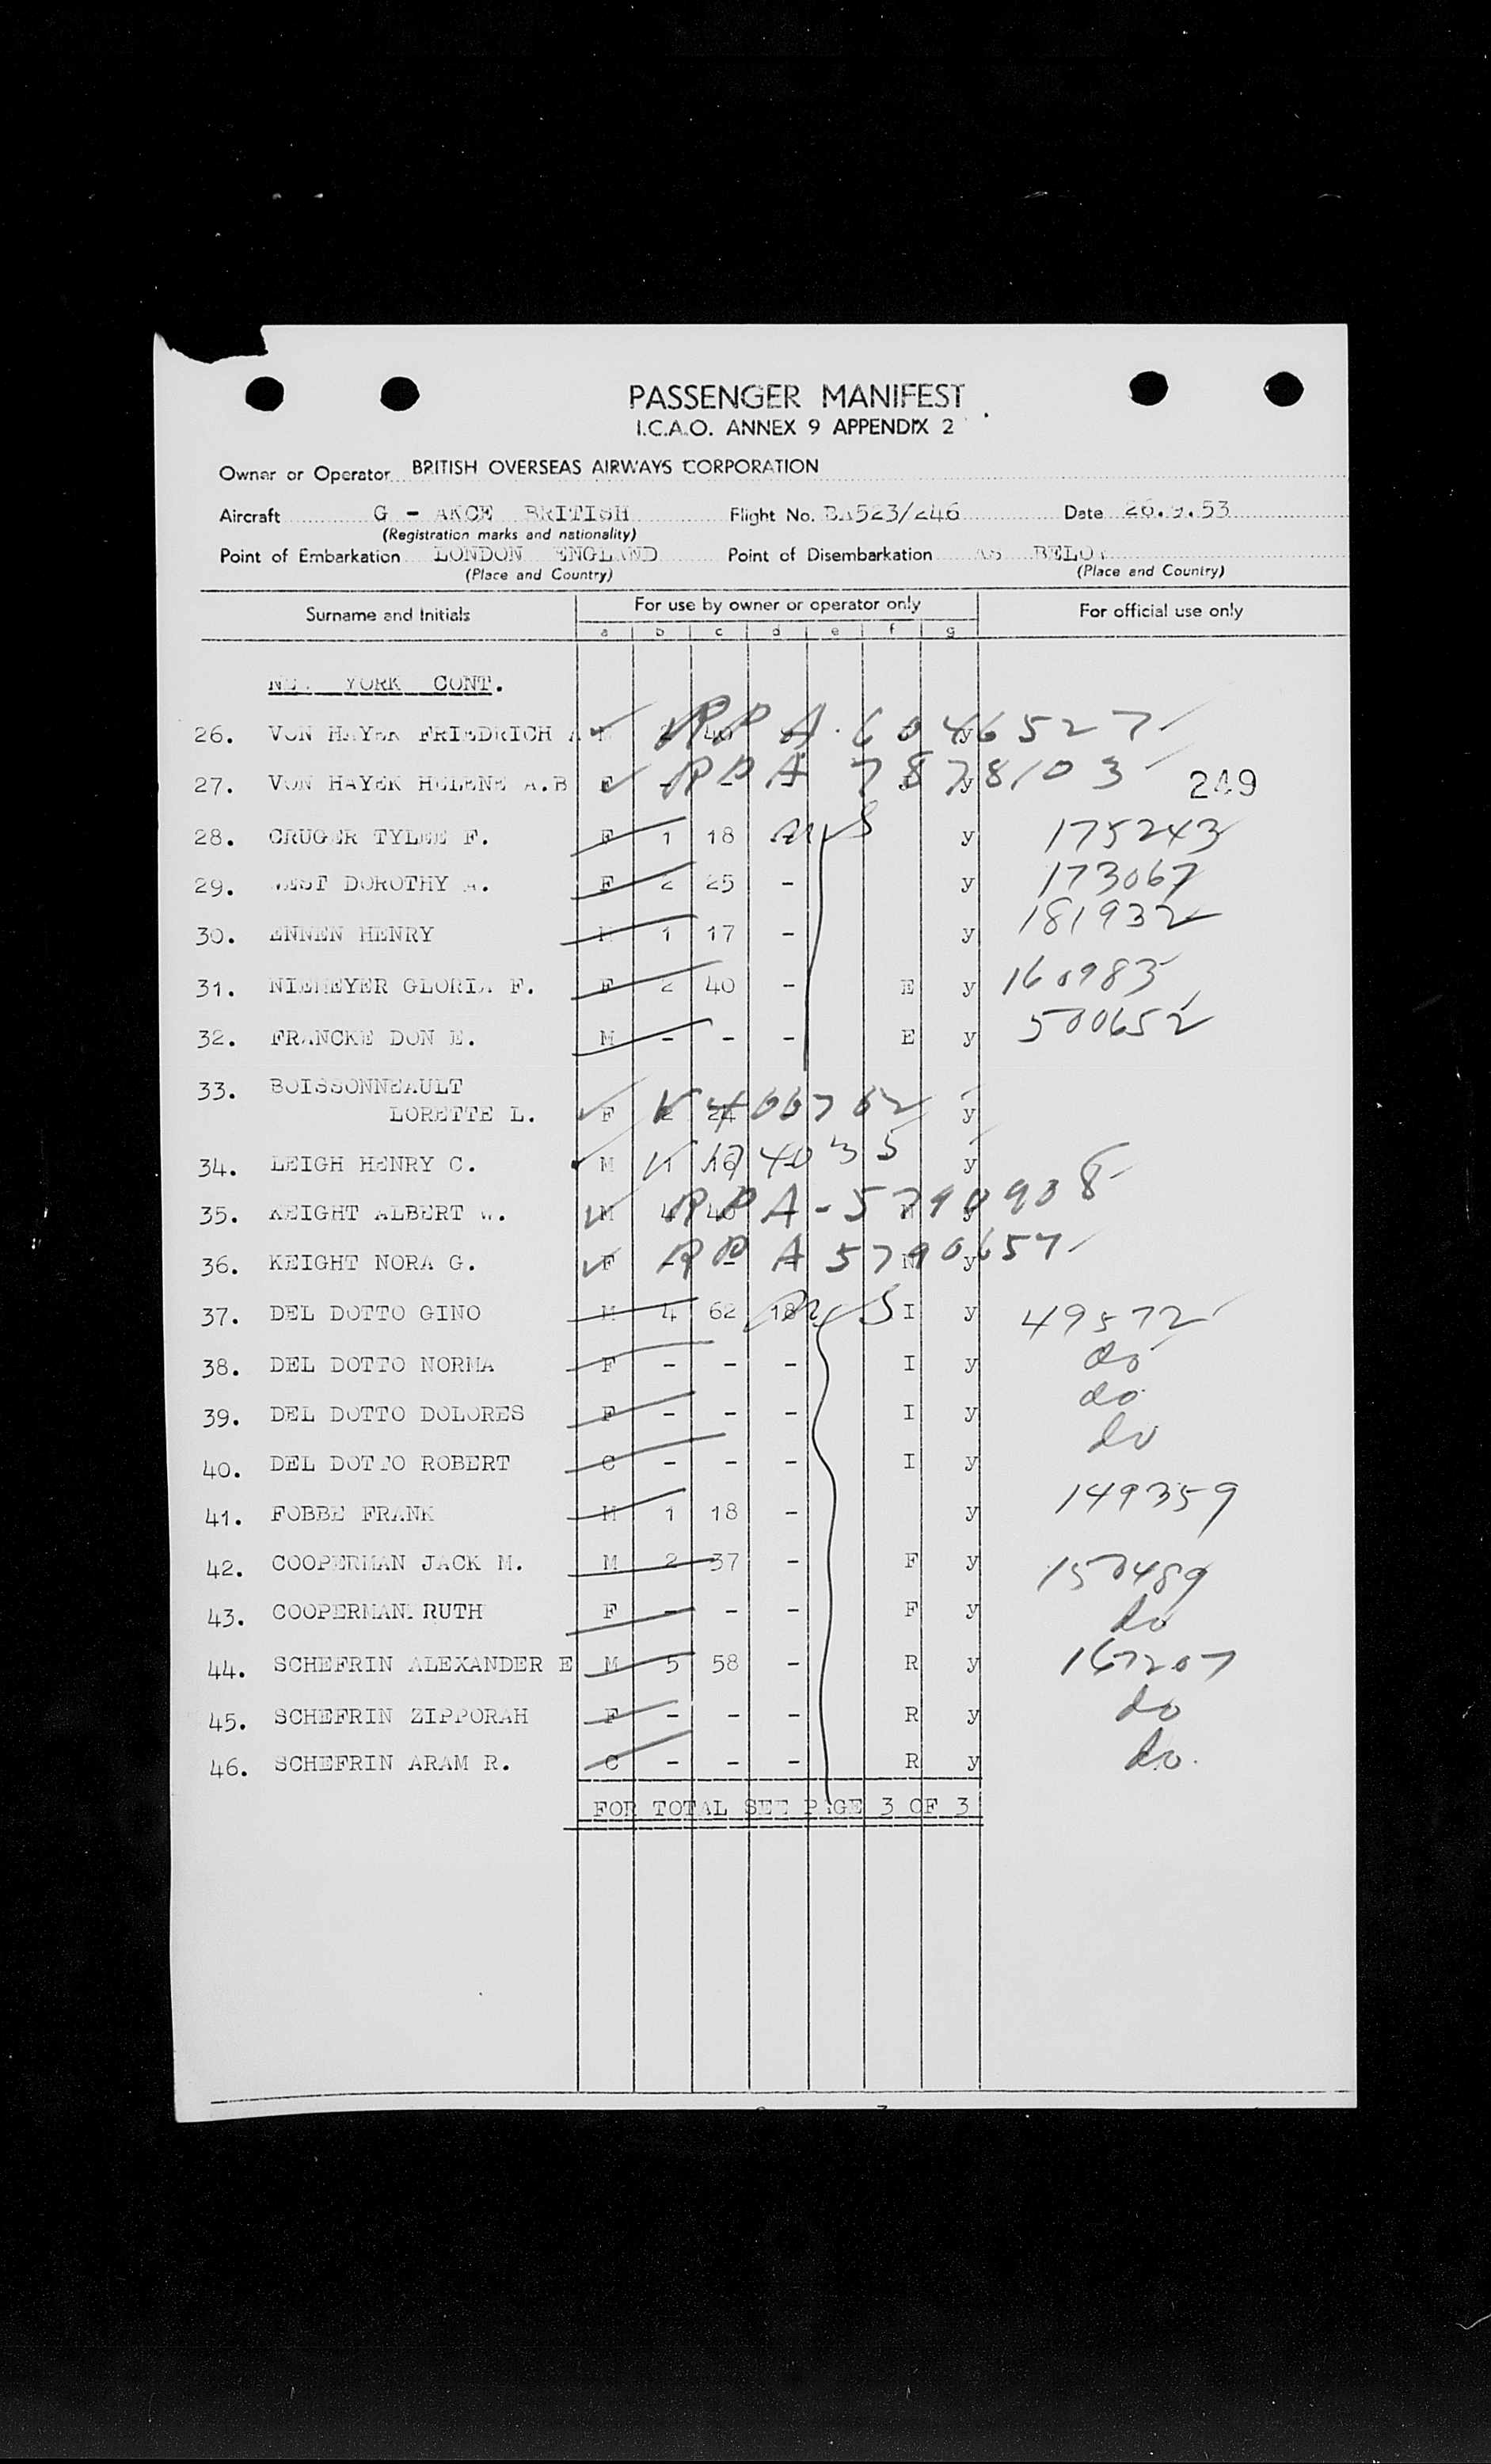 PASSENGER MANIFEST
I.C.A.O. ANNEX 9 APPENDIX 2
Owner or Operator BRITISH OVERSEAS AIRWAYS CORPORATION
Aircraft G - AKCE BRITISH Flight No. BA523/246 Date 26.9.53
(Registration marks and nationality)
Point of Embarkation LONDON ENGLAND Point of Disembarkation AS BELOW
(Place and Country) (Place and Country)
Surname and Initials For use by owner or operator only For official use only
a b c d e f g
NEW YORK CONT.
26. VON HAYEK FRIEDRICH A M 2 40 RPA.6046527 y
27. VON HAYEK HELENE A.B F - - - RPA 7878103 y
249
28. CRUGER TYLEE F. F 1 18 - y 175243
29. WEST DOROTHY F 2 25 - y 173067
30. ENNEN HENRY M 1 17 - y 181932
31. NIEMEYER GLORIA F. F 2 40 - E y 160983
32. FRANCKE DON E. M - - - E y 500652
33. BOISSONNEAULT
LORETTE L. F 2 24 y
34. LEIGH HENRY C. M 1 y
35. KEIGHT ALBERT W. M 4 40 RPA-5790908 y
36. KEIGHT NORA G. F - - - RPA 5790657 N y
37. DEL DOTTO GINO M 4 62 18 I y 49572
38. DEL DOTTO NORMA F - - - I y do
39. DEL DOTTO DOLORES F - - - I y do
40. DEL DOTTO ROBERT C - - - I y do
41. FOBBE FRANK M 1 18 - y 149359
42. COOPERMAN JACK M. M 2 37 - F y 150489
43. COOPERMAN RUTH F - - - F y do
44. SCHEFRIN ALEXANDER E M 5 58 - R y 167207
45. SCHEFRIN ZIPPORAH F - - - R y do
46. SCHEFRIN ARAM R. C - - - R y do.
FOR TOTAL SEE PAGE 3 OF 3